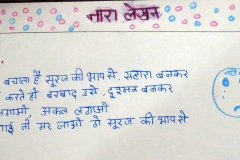 नारा लेखन
बचाता है सूरज की भाप से, सहारा बनकर
करते हो बरबाद उसे, दुश्मन बनकर
लगाओ, अकल लगाओ
तो मर जाओगे सूरज की भाप से